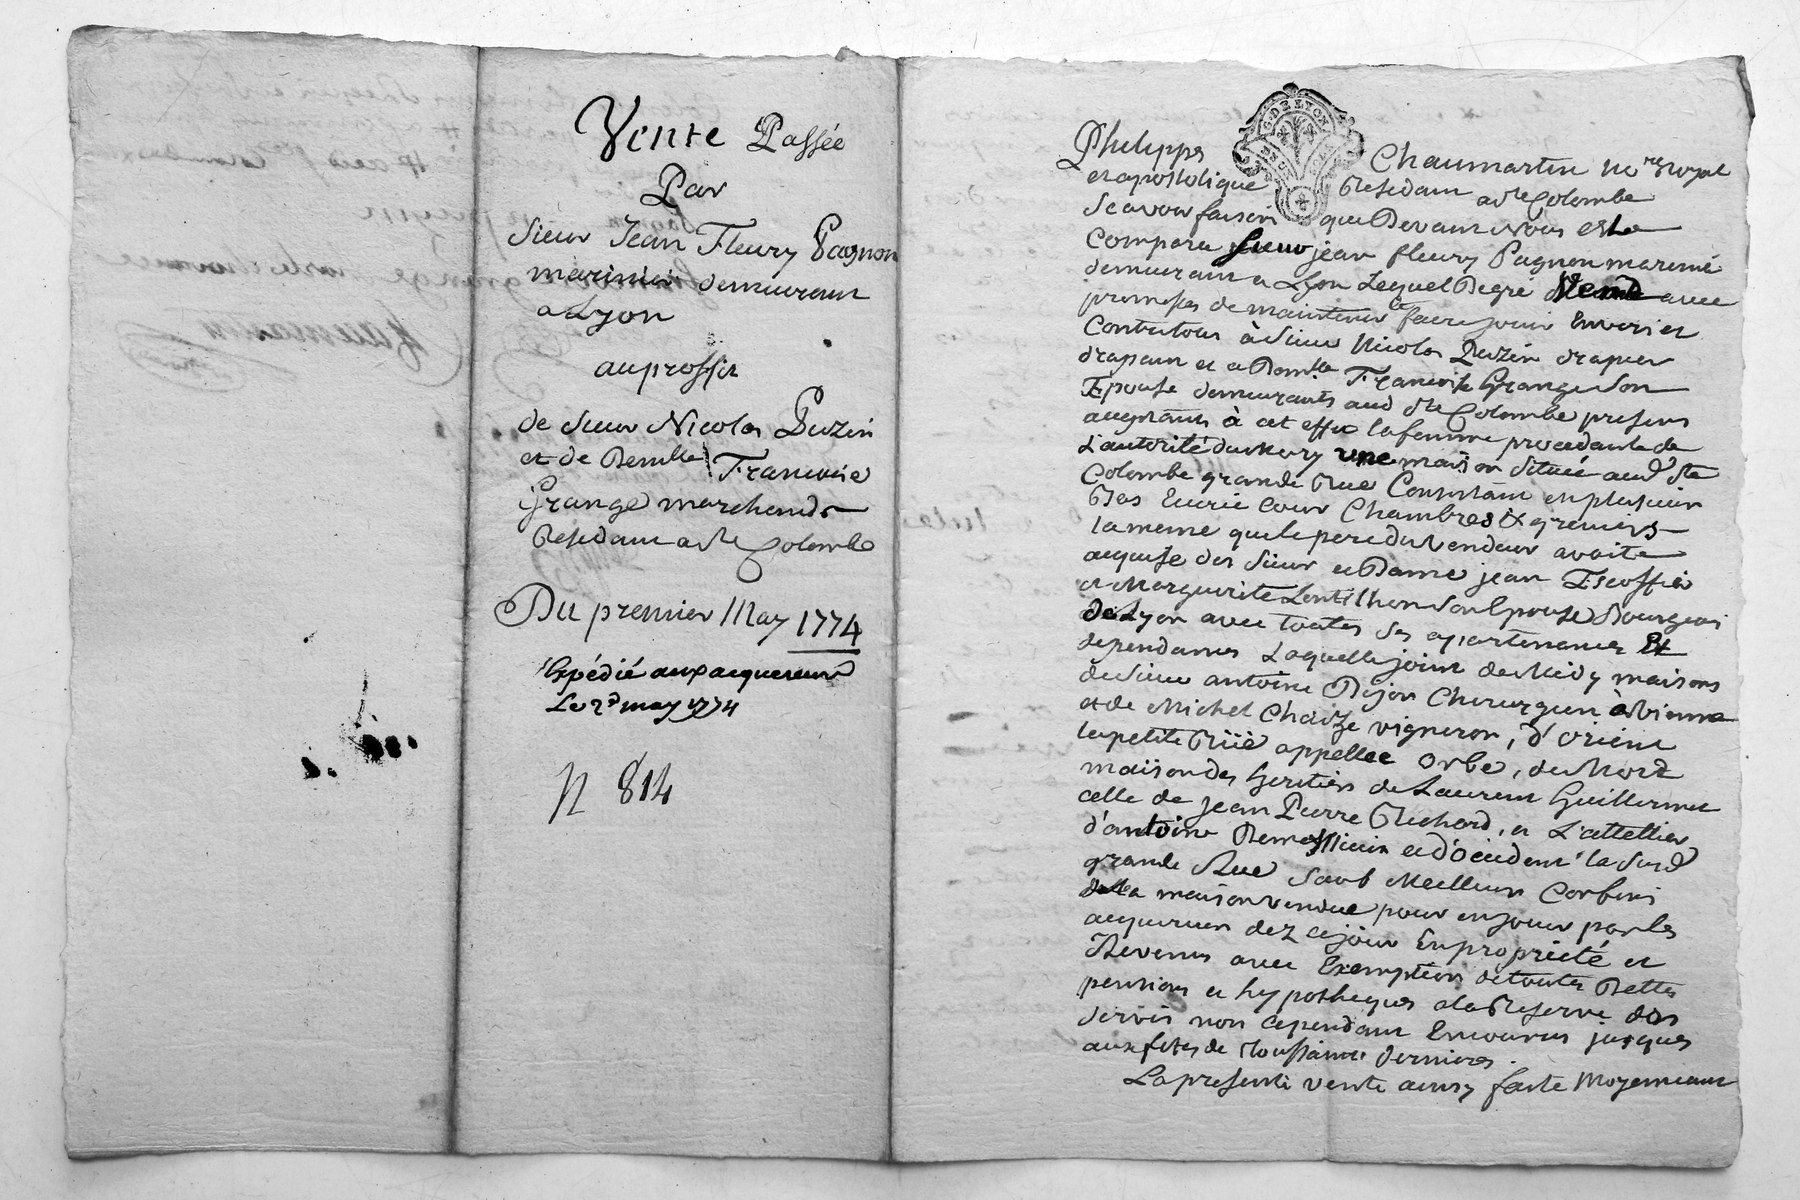 Vente Passée
Par
Sieur Jean Fleury Pagnon
marinier demeurant
a Lyon
au proffit
de Sieur Nicolas Puzin
et de Demlle Francoise
Grange marchands
Residant a Ste Colombe
Du premier May 1774
Expédié aux acquereurs
Le 2d may 1774
N 814
G. DE LYON
Philippe Chaumartin nore Royal
et apostolique Residant a Ste Colombe
Scavoir faisons que Devant Nous est
Comparu Sieur jean fleury Pagnon marinié
demeurant a Lyon Lequel De gré Vend avec
promesses de maintenir & faire jouir Envers et
Contre tous à Sieur Nicolas Puzin drapier
drapant et a Demlle Francoise Grange Son
Epouse demeurants aud Ste Colombe presens
acceptants à cet effet la femme procedante de
L'autorité du Mary une maison Située aud Ste
Colombe grande Rue Consistant en plusieurs
Bas Ecurie Cour Chambres & greniers
la meme que le pere du Vendeur avoit
acquise des Sieur et Dame jean Escoffier
et Marguerite Lentilhon Son Epouse Bourgeois
de Lyon avec toutes Ses apartenances Et
dependances Laquelle joint de Midy maisons
de Sieur antoine Dijon Chirurgien à Vienne
et de Michel Chaize vigneron, d'orient
la petite Rüe appellée Orbe, de Nord
maison des heritiers de Laurent Guillermet
celle de jean Pierre Richard, et L'attellier
d'antoine et d'occident la Susd
grande Rue Sauf Meilleurs Confins
de la maison vendue pour en jouir par les
acquereurs dez ce jour En propriété et
Revenus avec Exemption de toutes Dettes
pensions et hypotheques a la Reserve des
Servis non cependant Encourus jusques
aux fetes de Toussaints dernieres.
La presente vente ainsy faite Moyennant